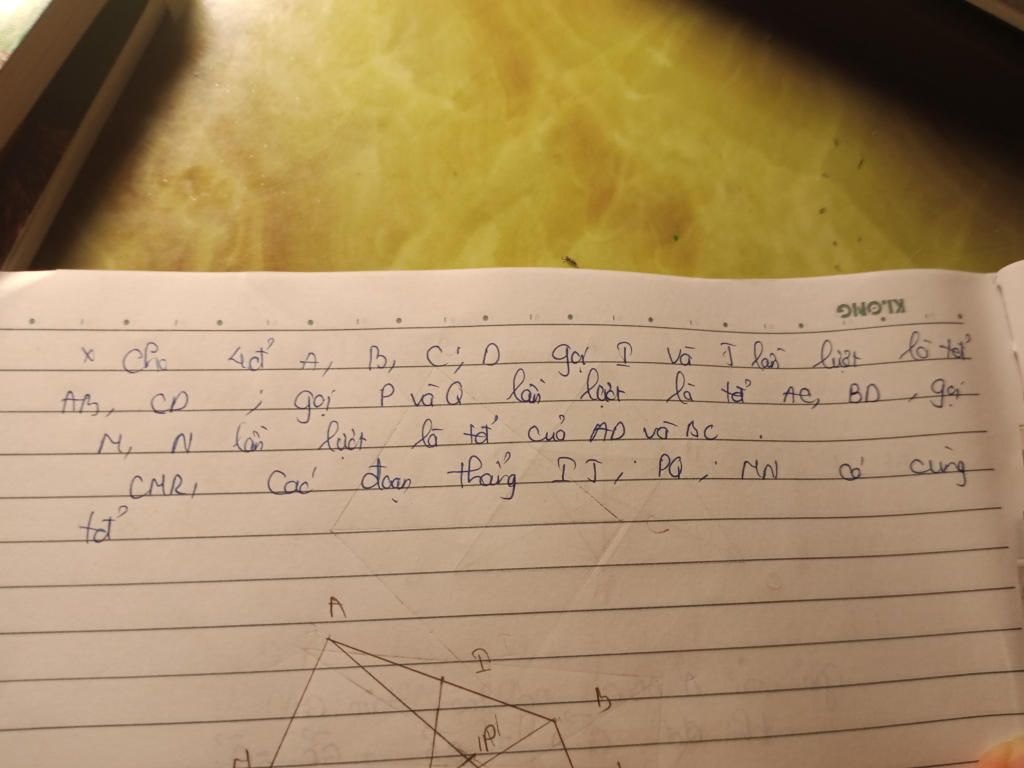 KLONG
x Cho 4đ' A, B, C; D gọi I và J lần lượt là tđ'
AB, CD ; gọi P và Q lần lượt là tđ' AC, BD, gọi
M, N lần lượt là tđ' của AD và BC.
CMR, Các đoạn thẳng IJ; PQ; MN có cùng
tđ'
C
A
I
B
P
M